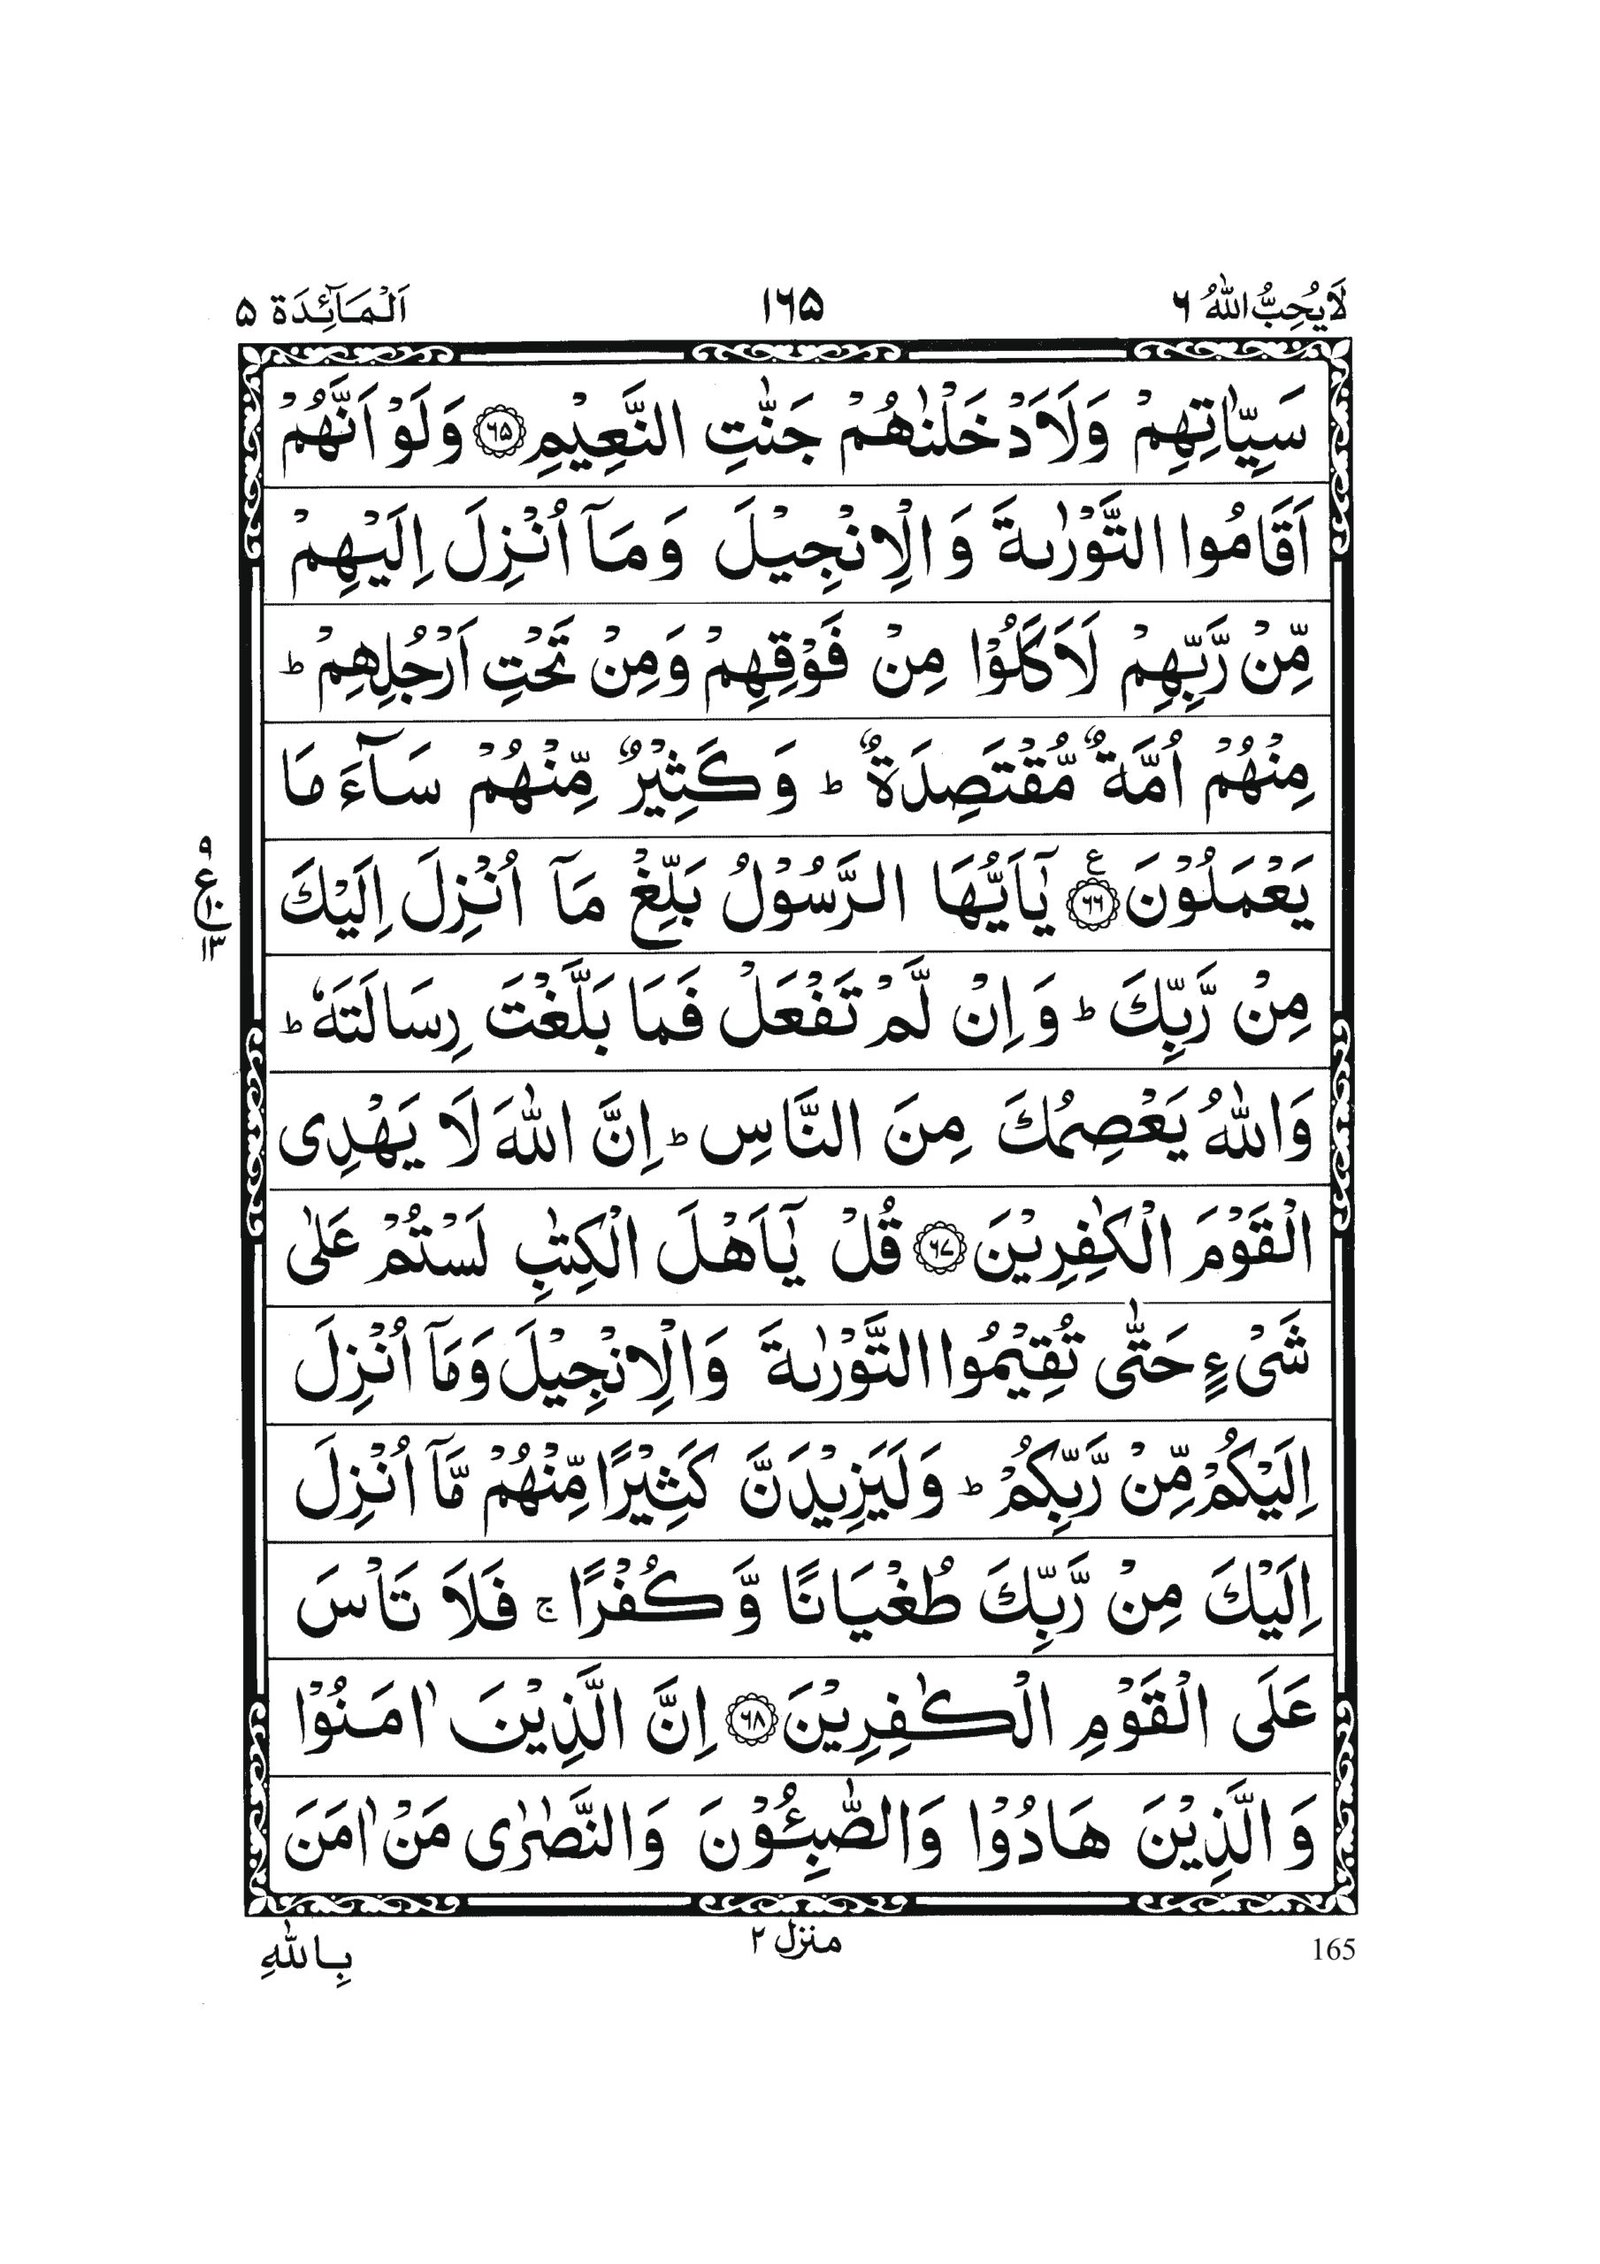 لَا يُحِبُّ اللّٰهُ ٦
١٦٥
اَلْمَآئِدَة ۵
سَيِّاٰتِهِمْ وَلَاَدْخَلْنٰهُمْ جَنّٰتِ النَّعِيْمِ ۶۵ وَلَوْ اَنَّهُمْ
اَقَامُوا التَّوْرٰىةَ وَالْاِنْجِيْلَ وَمَآ اُنْزِلَ اِلَيْهِمْ
مِّنْ رَّبِّهِمْ لَاَكَلُوْا مِنْ فَوْقِهِمْ وَمِنْ تَحْتِ اَرْجُلِهِمْ ؕ
مِنْهُمْ اُمَّةٌ مُّقْتَصِدَةٌ ؕ وَكَثِيْرٌ مِّنْهُمْ سَآءَ مَا
يَعْمَلُوْنَ ۶۶ ع يٰٓاَيُّهَا الرَّسُوْلُ بَلِّغْ مَآ اُنْزِلَ اِلَيْكَ
٩
ع
١٠
١٣
مِنْ رَّبِّكَ ؕ وَاِنْ لَّمْ تَفْعَلْ فَمَا بَلَّغْتَ رِسَالَتَهٗ ؕ
وَاللّٰهُ يَعْصِمُكَ مِنَ النَّاسِ ؕ اِنَّ اللّٰهَ لَا يَهْدِى
الْقَوْمَ الْكٰفِرِيْنَ ۶۷ قُلْ يٰٓاَهْلَ الْكِتٰبِ لَسْتُمْ عَلٰى
شَىْءٍ حَتّٰى تُقِيْمُوا التَّوْرٰىةَ وَالْاِنْجِيْلَ وَمَآ اُنْزِلَ
اِلَيْكُمْ مِّنْ رَّبِّكُمْ ؕ وَلَيَزِيْدَنَّ كَثِيْرًا مِّنْهُمْ مَّآ اُنْزِلَ
اِلَيْكَ مِنْ رَّبِّكَ طُغْيَانًا وَّكُفْرًا ۚ فَلَا تَاْسَ
عَلَى الْقَوْمِ الْكٰفِرِيْنَ ۶۸ اِنَّ الَّذِيْنَ اٰمَنُوْا
وَالَّذِيْنَ هَادُوْا وَالصّٰبِئُوْنَ وَالنَّصٰرٰى مَنْ اٰمَنَ
165
منزل ٢
بِاللّٰهِ